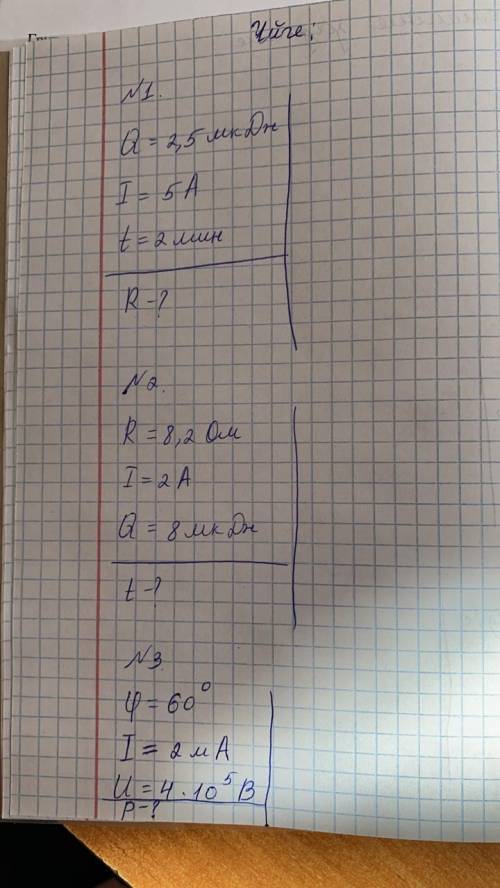 Үйге:
№1.
Q = 2,5 мкДж
I = 5 А
t = 2 мин
R - ?
№2.
R = 8,2 Ом
I = 2 А
Q = 8 мкДж
t - ?
№3
φ = 60°
I = 2 мА
U = 4 · 10⁵ В
P - ?